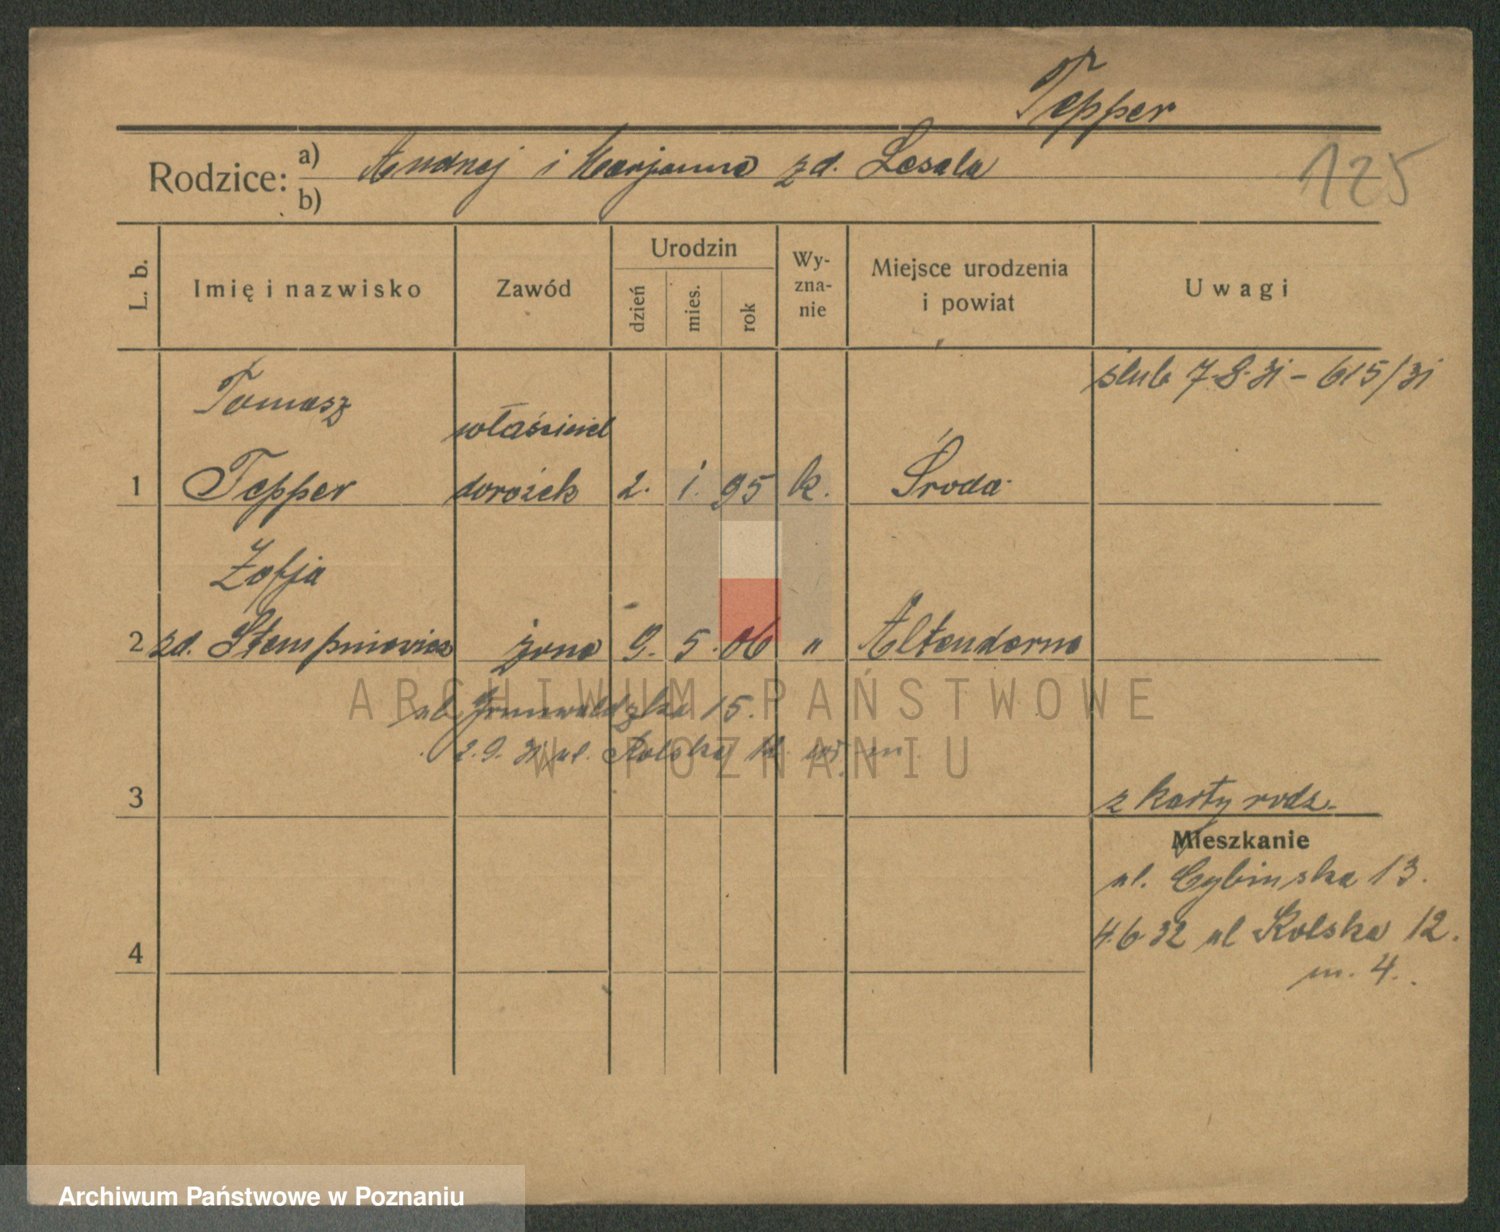 Tepper
Rodzice: a) Andrzej i Marjanna zd. Lesala
b)
125
L. b.
Imię i nazwisko
Zawód
Urodzin
dzień
mies.
rok
Wy-
zna-
nie
Miejsce urodzenia
i powiat
Uwagi
ślub 7.8.31 - 615/31
Tomasz
właściciel
1 Tepper dorożek 2. 1. 95 k. Środa
Zofja
2 zd. Stempniewicz żona 9. 5. 06 " Altendorne
ul. Grunwaldzka 15.
2.9.31 ul. Rolska 12
3
z karty rodz.
Mieszkanie
ul. Cybinska 13.
4.6.32 ul Rolska 12.
m. 4.
4
ARCHIWUM PAŃSTWOWE
W POZNANIU
Archiwum Państwowe w Poznaniu